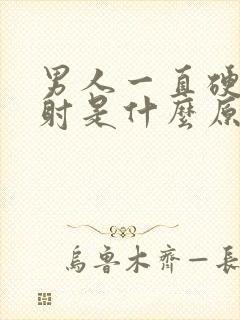 男人一直硬
射是什麼原
烏魯木齊一長